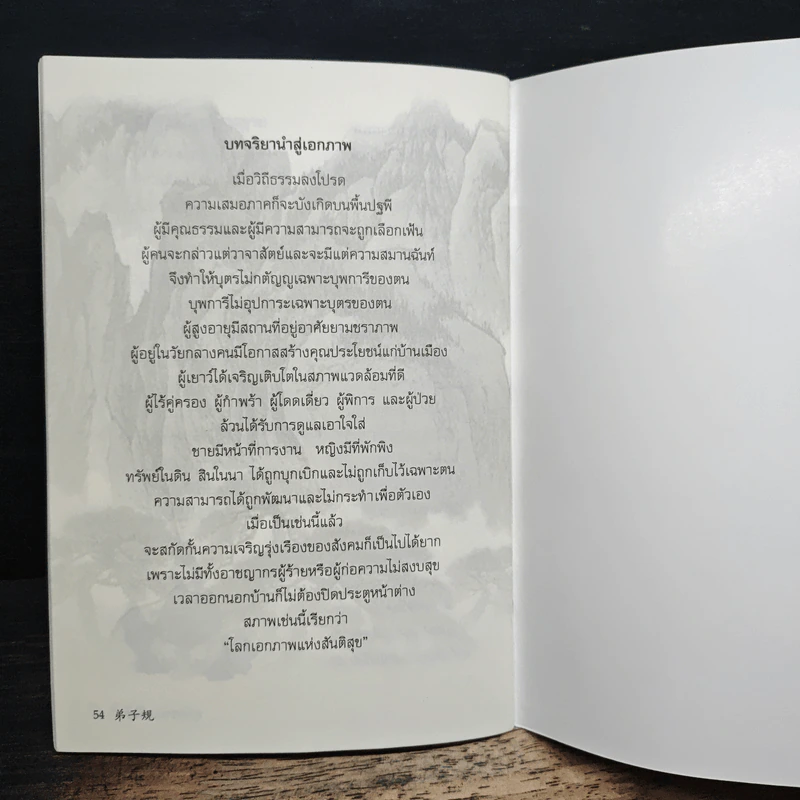 บทจริยานำสู่เอกภาพ
เมื่อวิถีธรรมลงโปรด
ความเสมอภาคก็จะบังเกิดบนพื้นปฐพี
ผู้มีคุณธรรมและผู้มีความสามารถจะถูกเลือกเฟ้น
ผู้คนจะกล่าวแต่วาจาสัตย์และจะมีแต่ความสมานฉันท์
จึงทำให้บุตรไม่กตัญญูเฉพาะบุพการีของตน
บุพการีไม่อุปการะเฉพาะบุตรของตน
ผู้สูงอายุมีสถานที่อยู่อาศัยยามชราภาพ
ผู้อยู่ในวัยกลางคนมีโอกาสสร้างคุณประโยชน์แก่บ้านเมือง
ผู้เยาว์ได้เจริญเติบโตในสภาพแวดล้อมที่ดี
ผู้ไร้คู่ครอง ผู้กำพร้า ผู้โดดเดี่ยว ผู้พิการ และผู้ป่วย
ล้วนได้รับการดูแลเอาใจใส่
ชายมีหน้าที่การงาน หญิงมีที่พักพิง
ทรัพย์ในดิน สินในนา ได้ถูกบุกเบิกและไม่ถูกเก็บไว้เฉพาะตน
ความสามารถได้ถูกพัฒนาและไม่กระทำเพื่อตัวเอง
เมื่อเป็นเช่นนี้แล้ว
จะสกัดกั้นความเจริญรุ่งเรืองของสังคมก็เป็นไปได้ยาก
เพราะไม่มีทั้งอาชญากรผู้ร้ายหรือผู้ก่อความไม่สงบสุข
เวลาออกนอกบ้านก็ไม่ต้องปิดประตูหน้าต่าง
สภาพเช่นนี้เรียกว่า
“โลกเอกภาพแห่งสันติสุข”
54 弟子規